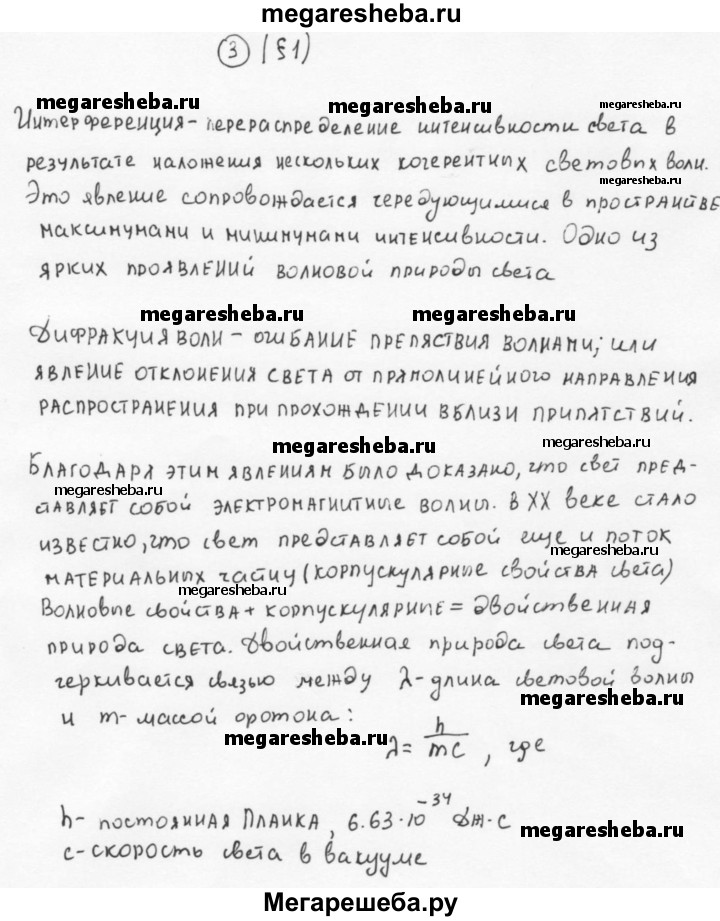 megaresheba.ru
3 (§1)
megaresheba.ru megaresheba.ru megaresheba.ru
Интерференция - перераспределение интенсивности света в
результате наложения нескольких когерентных световых волн.
megaresheba.ru
Это явление сопровождается чередующимися в пространстве
максимумами и минимумами интенсивности. Одно из
ярких проявлений волновой природы света
megaresheba.ru megaresheba.ru
Дифракция волн - огибание препяствия волнами; или
явление отклонения света от прямолинейного направления
распространения при прохождении вблизи припятствий.
megaresheba.ru megaresheba.ru
Благодаря этим явлениям было доказано, что свет пред-
megaresheba.ru
ставляет собой электромагнитные волны. В XX веке стало
известно, что свет представляет собой еще и поток
megaresheba.ru
материальных частиц (корпускулярные свойства света)
megaresheba.ru
Волновые свойства + корпускулярные = двойственная
природа света. Двойственная природа света под-
megaresheba.ru
черкивается связью между λ - длина световой волны
megaresheba.ru
и m - массой фотона:
megaresheba.ru
λ = h/mc, где
h - постоянная Планка, 6.63·10⁻³⁴ Дж·с
megaresheba.ru
c - скорость света в вакууме
Мегарешеба.ру